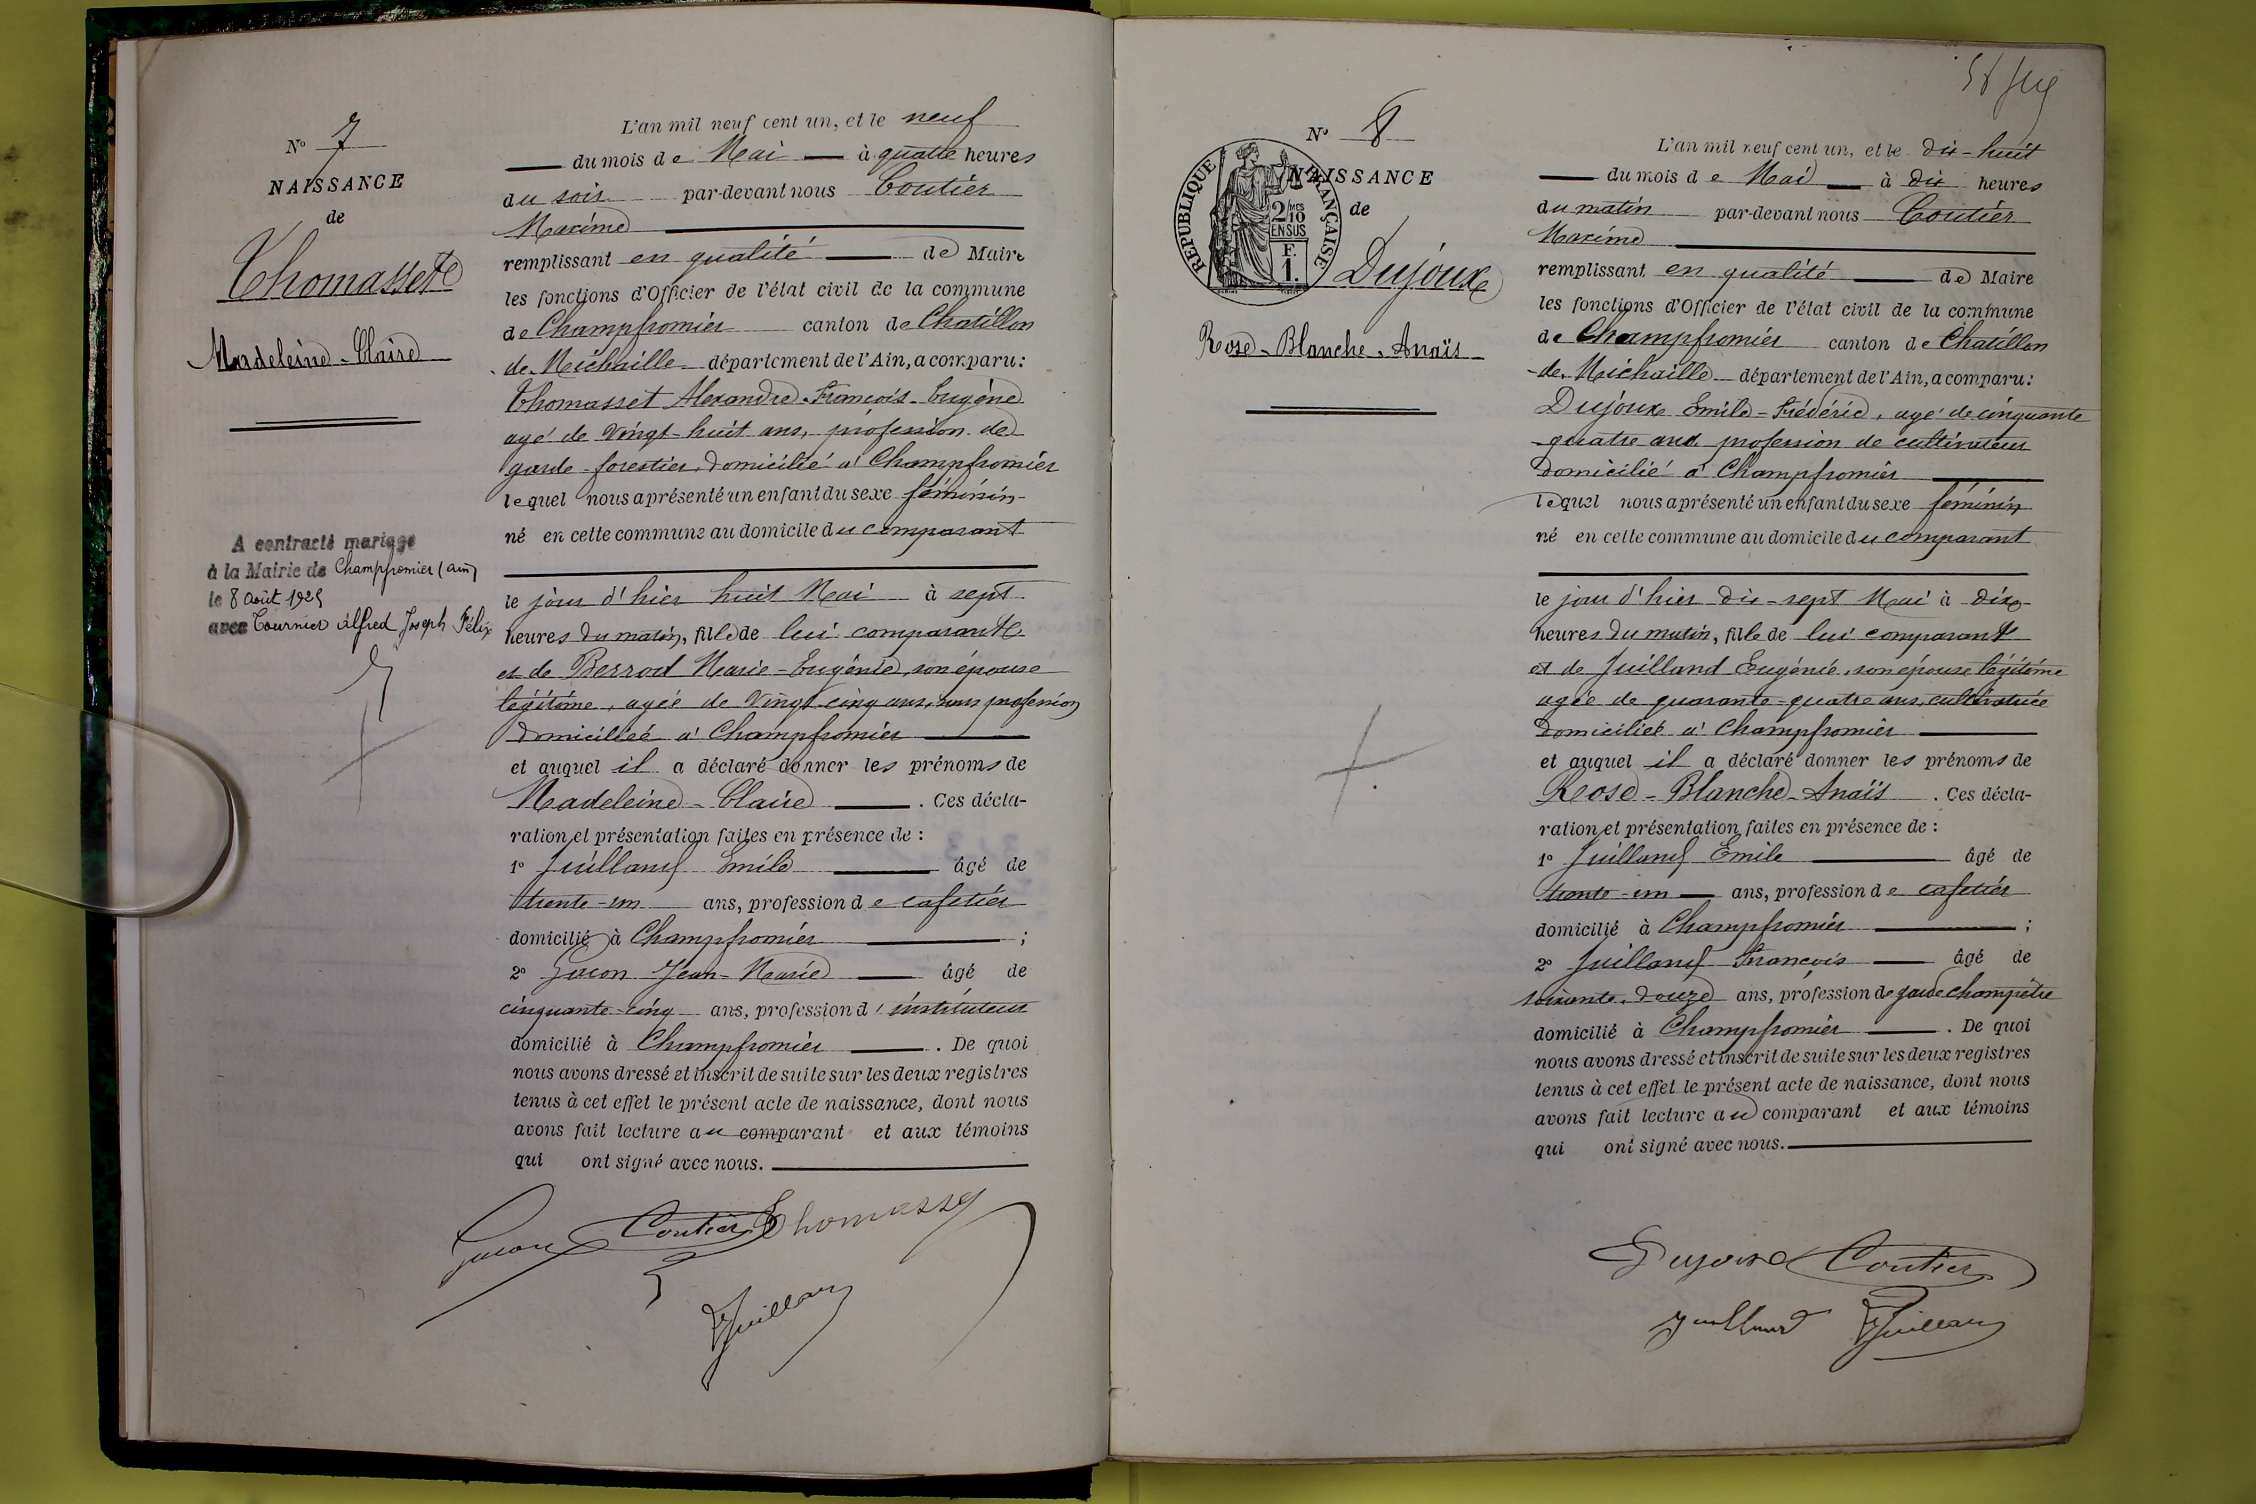 N° 7
NAISSANCE
de
Thomasset
Madeleine-Claire
A contracté mariage
à la Mairie de Champfromier (Ain)
le 8 août 1925
avec Tournier Alfred Joseph Félix
L'an mil neuf cent un, et le neuf
du mois de Mai à quatre heures
du soir par-devant nous Coutier
Maxime
remplissant en qualité de Maire
les fonctions d'Officier de l'état civil de la commune
de Champfromier canton de Chatillon
de Michaille département de l'Ain, a comparu:
Thomasset Alexandre-François-Eugène
agé de vingt-huit ans, profession de
garde-forestier, domicilié à Champfromier
lequel nous a présenté un enfant du sexe féminin
né en cette commune au domicile du comparant
le jour d'hier huit Mai à sept
heures du matin, fille de lui comparant
et de Berrod Marie-Eugénie, son épouse
légitime, agée de vingt-cinq ans, sans profession
domiciliée à Champfromier
et auquel il a déclaré donner les prénoms de
Madeleine-Claire. Ces décla-
ration et présentation faites en présence de:
1° Juilland Emile âgé de
trente-un ans, profession de cafetier
domicilié à Champfromier;
2° Jean-Marie âgé de
cinquante-cinq ans, profession d'instituteur
domicilié à Champfromier. De quoi
nous avons dressé et inscrit de suite sur les deux registres
tenus à cet effet le présent acte de naissance, dont nous
avons fait lecture au comparant et aux témoins
qui ont signé avec nous.
Coutier Thomasset
Juilland
N° 8
NAISSANCE
de
REPUBLIQUE FRANÇAISE
2 MES
10
EN SUS
F.
1.
Dujoux
Rose-Blanche-Anaïs
L'an mil neuf cent un, et le dix-huit
du mois de Mai à dix heures
du matin par-devant nous Coutier
Maxime
remplissant en qualité de Maire
les fonctions d'Officier de l'état civil de la commune
de Champfromier canton de Chatillon
de Michaille département de l'Ain, a comparu:
Dujoux Emile-Frédéric, agé de cinquante
quatre ans, profession de cultivateur
domicilié à Champfromier
lequel nous a présenté un enfant du sexe féminin
né en cette commune au domicile du comparant
le jour d'hier dix-sept Mai à dix
heures du matin, fille de lui comparant
et de Juilland Eugénie, son épouse légitime
agée de quarante-quatre ans, cultivatrice
domiciliée à Champfromier
et auquel il a déclaré donner les prénoms de
Rose-Blanche-Anaïs. Ces décla-
ration et présentation faites en présence de:
1° Juilland Emile âgé de
trente-un ans, profession de cafetier
domicilié à Champfromier;
2° Juilland François âgé de
soixante-douze ans, profession de garde champêtre
domicilié à Champfromier. De quoi
nous avons dressé et inscrit de suite sur les deux registres
tenus à cet effet le présent acte de naissance, dont nous
avons fait lecture au comparant et aux témoins
qui ont signé avec nous.
Dujoux Coutier
Juilland Juilland